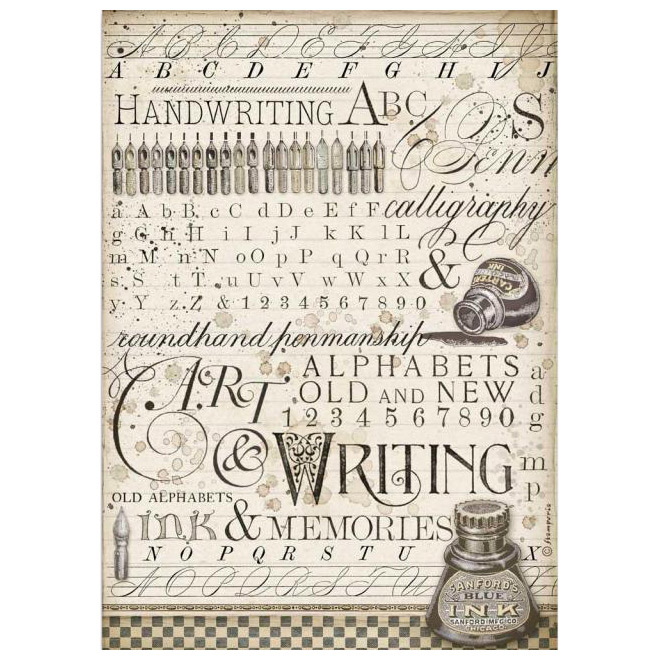 A B C D E F G H I
A B C D E F G H I J
HANDWRITING ABC S
Penn
calligraphy
a A b B c C d D e E f F
g G h H i I j J k K l L
m M n N o O p P q Q r R
s S t T u U v V w W x X &
y Y z Z & 1 2 3 4 5 6 7 8 9 0
CARTER'S
INK
roundhand penmanship
ART
ALPHABETS
OLD AND NEW
1 2 3 4 5 6 7 8 9 0
a
d
g
& WRITING
m
p
OLD ALPHABETS
INK & MEMORIES
© Stamperia
N O P Q R S T U X
SANFORD'S
BLUE
INK
SANFORD MFG. CO.
CHICAGO